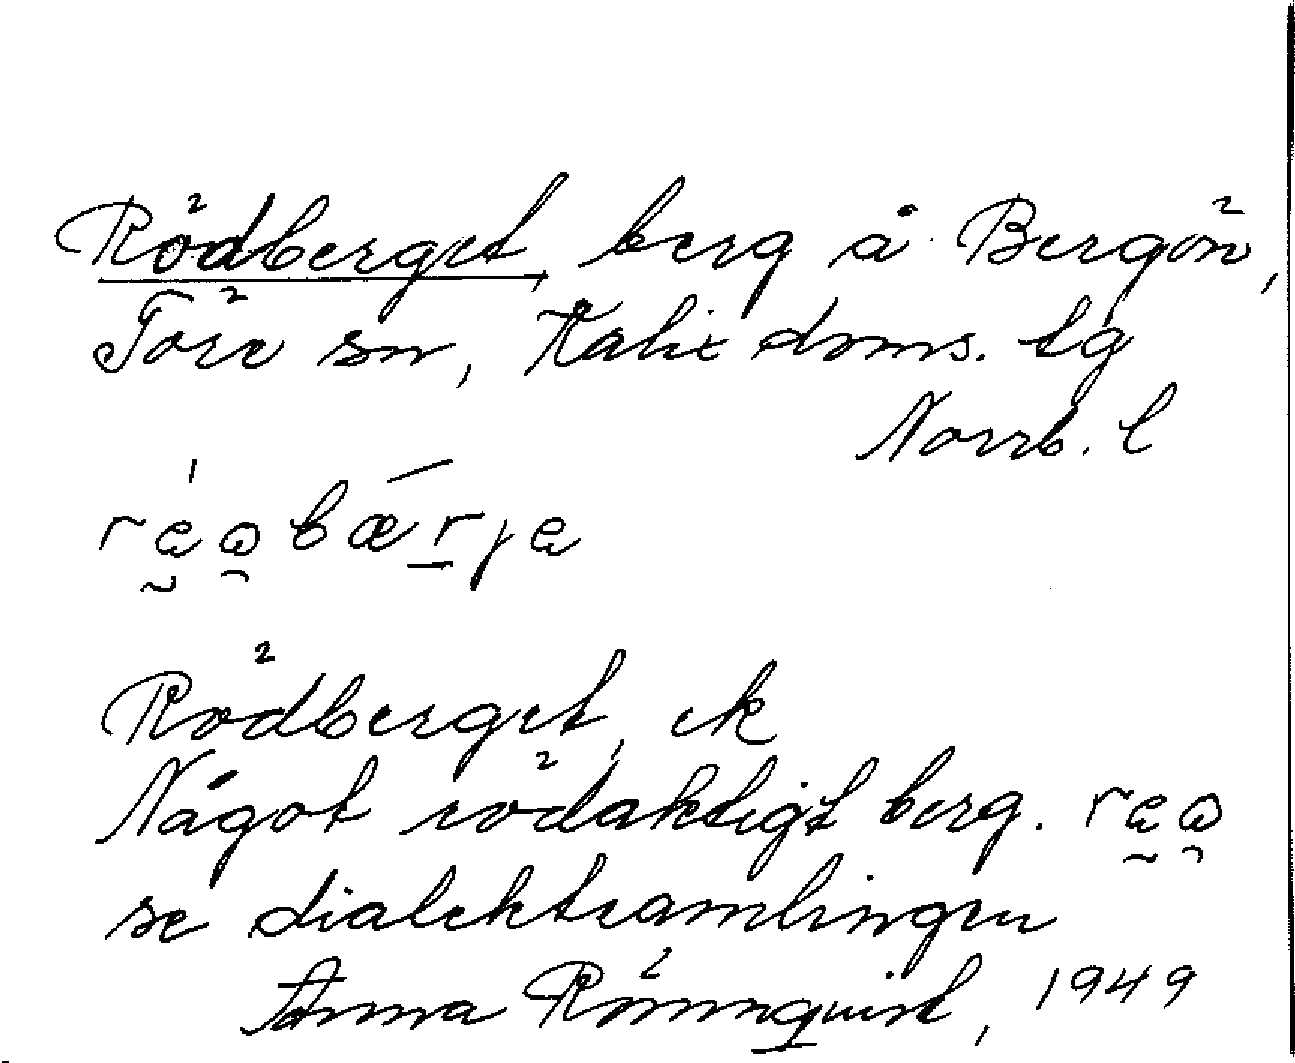 Rödberget, berg å Bergön,
Töre sn, Kalix doms. tg
Norrb. l
Rödberget, ek
Något rödaktigt berg.
se dialektsamlingen
Anna Rönnquist, 1949